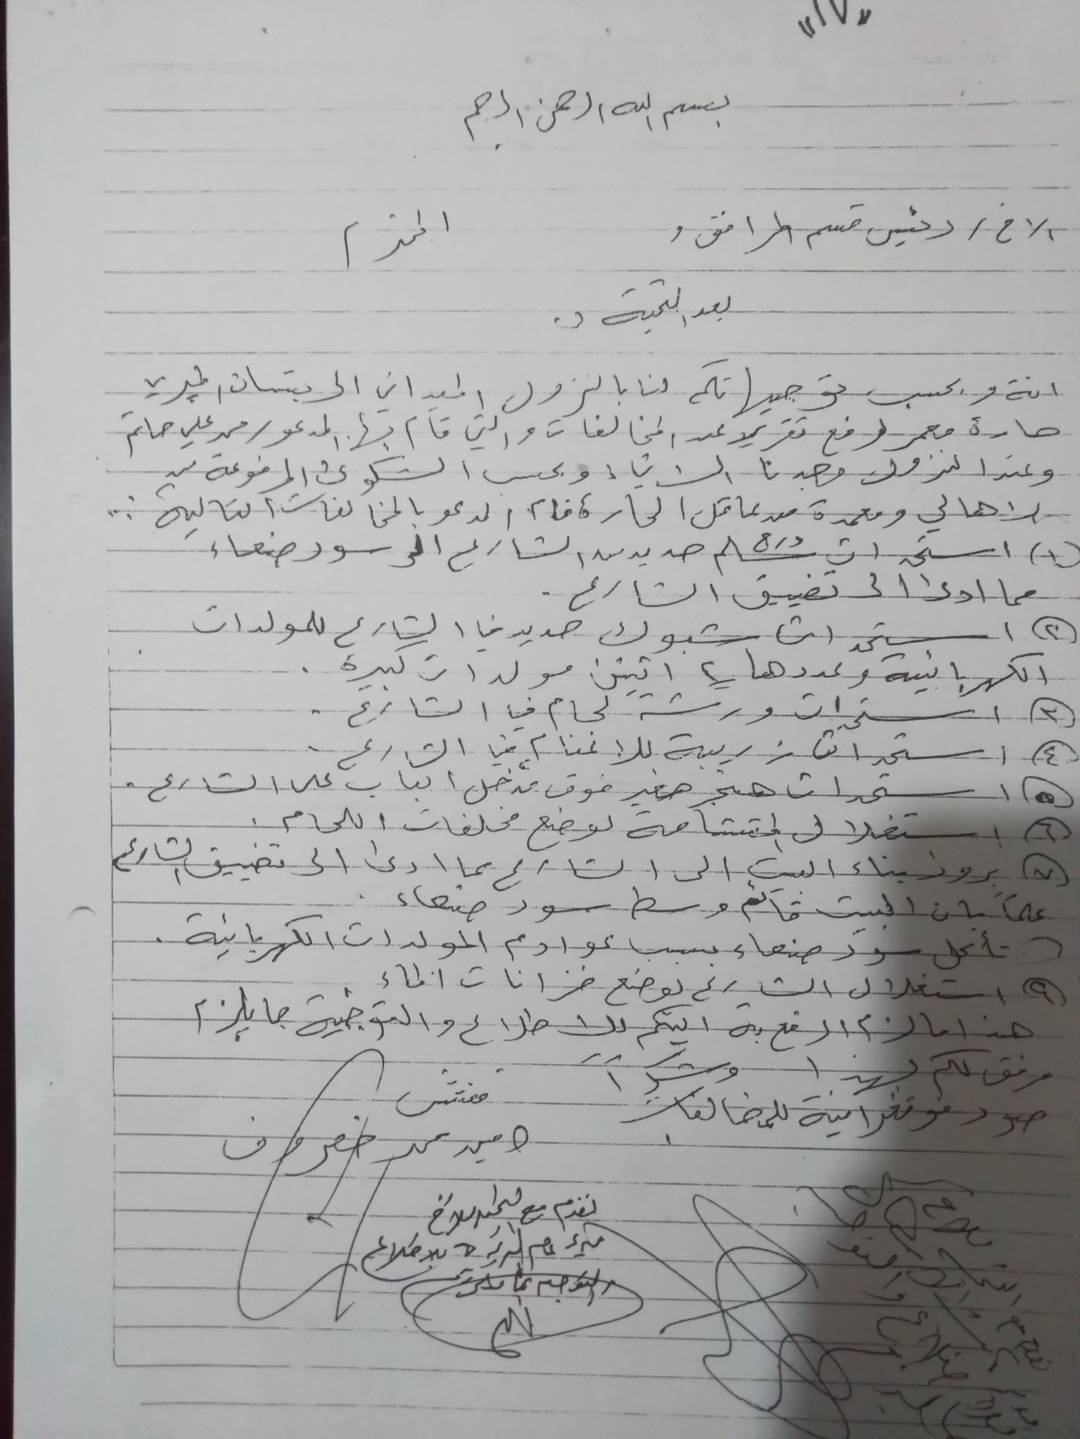 بسم الله الرحمن الرحيم
الاخ / رئيس قسم المرافق و المحترم
بعد التحية و.
انه و بحسب توجيهاتكم لنا بالنزول الميداني الى بستان
حارة معمر لرفع تقرير عن المخالفات والتي قام بها المدعو / محمد علي حاتم
وعند النزول وجدنا الاتي وبحسب الشكوى المرفوعة من
الاهالي ومعمدة من عاقل الحارة قام المدعو بالمخالفات التالية :.
(١) استحداث درج سلم حديد من الشارع الى سور صنعاء
مما ادى الى تضييق الشارع .
(٢) استحداث شبوك حديد في الشارع للمولدات
الكهربائية وعددها ٢ اثنين مولدات كبيرة .
(٣) استحداث ورشة لحام في الشارع .
(٤) استحداث زريبة للاغنام في الشارع .
(٥) استحداث هنجر صغير فوق مدخل الباب على الشارع .
(٦) استغلال المقشامة لوضع مخلفات اللحام .
(٧) بروز بناء البيت الى الشارع مما ادى الى تضييق الشارع
علماً بان البيت قائم وسط سور صنعاء .
تأكل سور صنعاء بسبب عوادم المولدات الكهربائية .
(٩) استغلال الشارع لوضع خزانات الماء
هذا ما لزم الرفع به اليكم للاطلاع والتوجيه بما يلزم
مرفق لكم بهذا وشكراً
صور فوتغرافية للمخالفات
مفتش
محمد
نقدم مع التحية للاخ
مدير عام المديرية للاطلاع
والتوجيه بما ترون